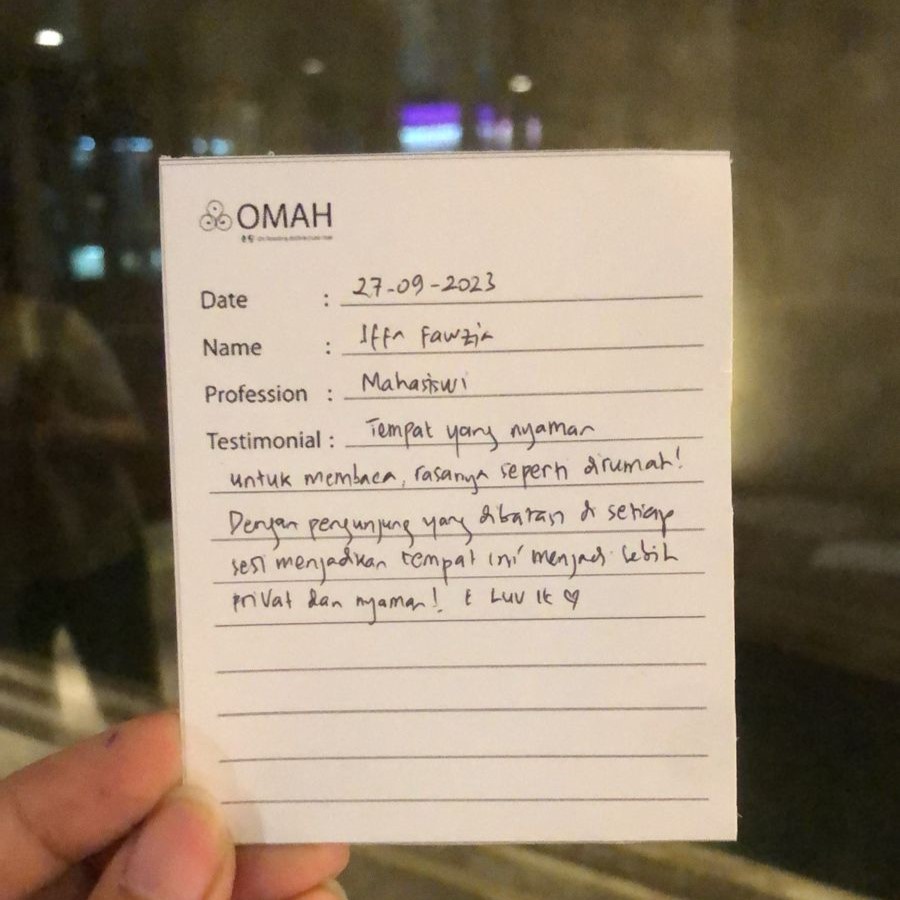 OMAH
Date : 27-09-2023
Name : Iffa Fawzia
Profession : Mahasiswi
Testimonial : Tempat yang nyaman
untuk membaca, rasanya seperti dirumah!
Dengan pengunjung yang dibatasi di setiap
sesi menjadikan tempat ini menjadi lebih
privat dan nyaman! I Luv It ♡